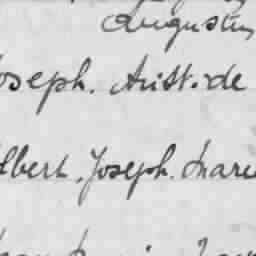 Augustin
Joseph. Aristide
Albert. Joseph. Marie